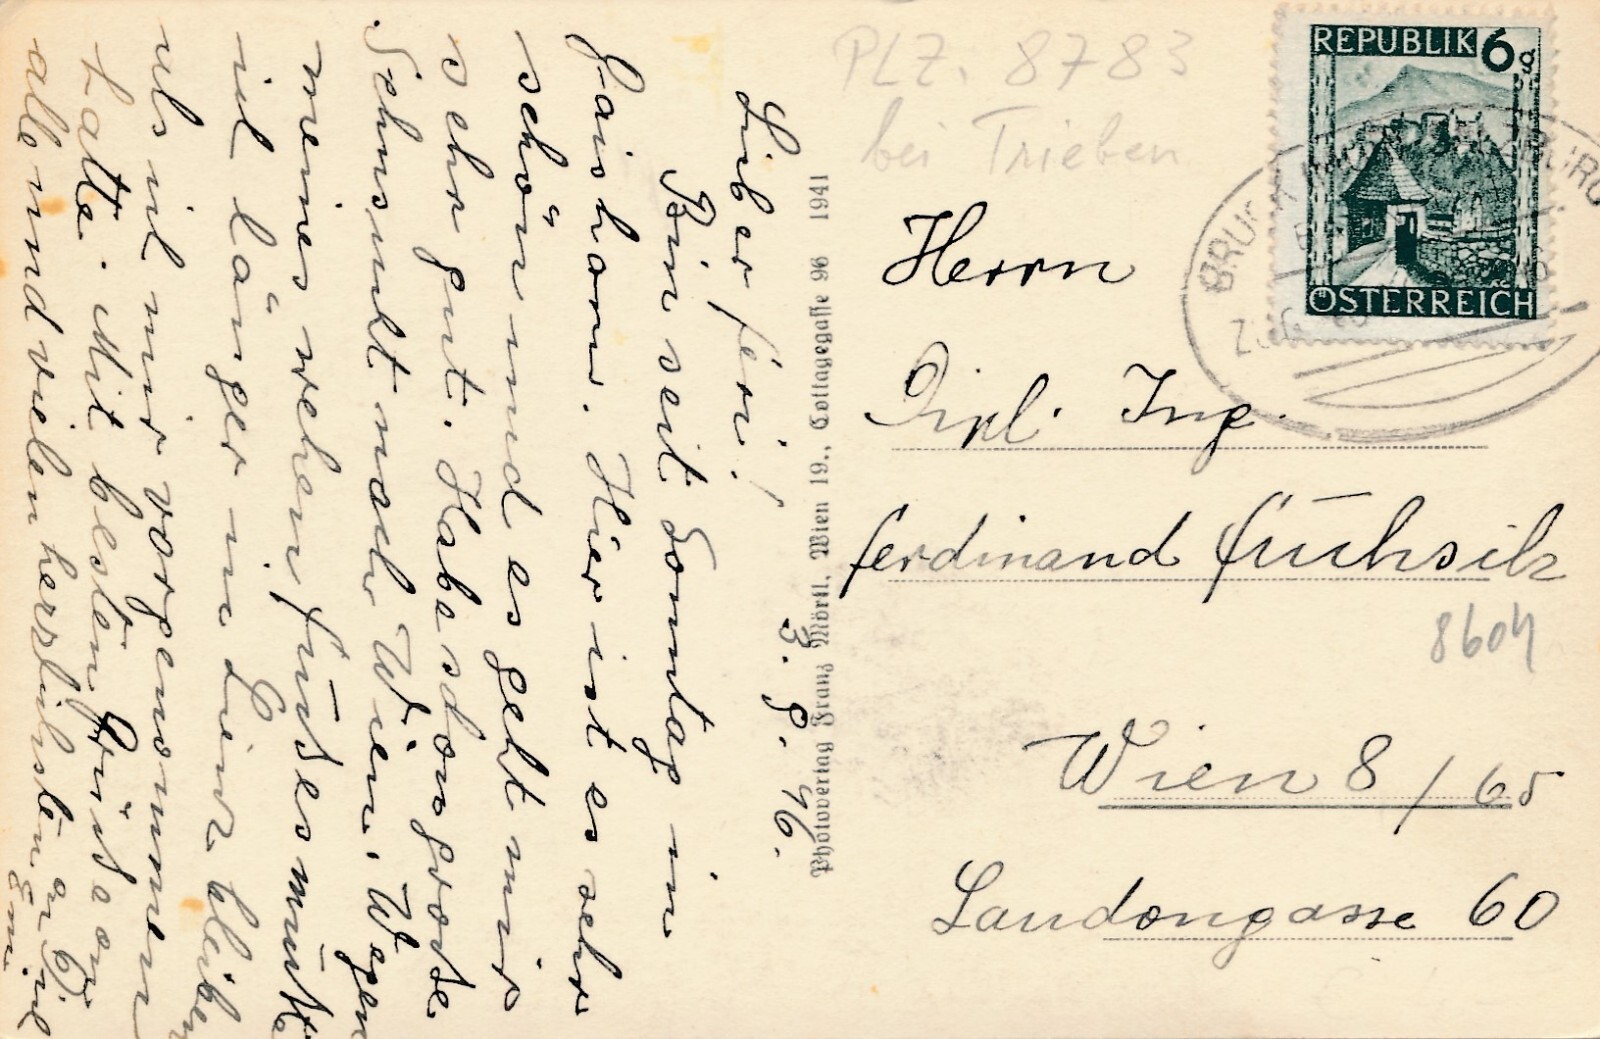 Lieber Feri!
3. 9. 46.
Bin seit Sonntag in
Gaishorn. Hier ist es sehr
schön und es geht mir
sehr gut. Habe schon grosse
Sehnsucht nach Wien. Wegen
meines wehen Fußes mußte
ich länger in Linz bleiben
als ich mir vorgenommen
hatte. Mit besten Grüßen an
alle und vielen herzlichsten an Dich
Emi.
Photoverlag Franz Mörtl, Wien 19., Cottagegasse 96 1941
PLZ. 8783
bei Trieben
REPUBLIK 6g
ÖSTERREICH
BRUCK
Herrn
Dipl. Ing.
Ferdinand Füchsik
8604
Wien 8/65
Laudongasse 60